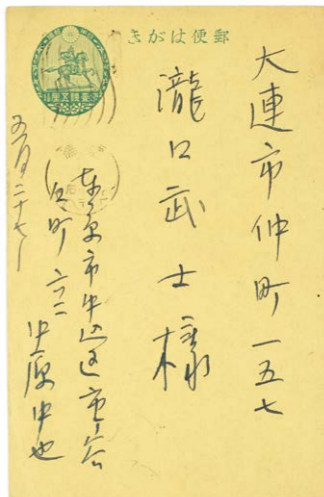 郵便はがき
大連市仲町一五七
瀧口武士様
東京市牛込区市ヶ谷
谷町六二
中原中也
五月二十七日